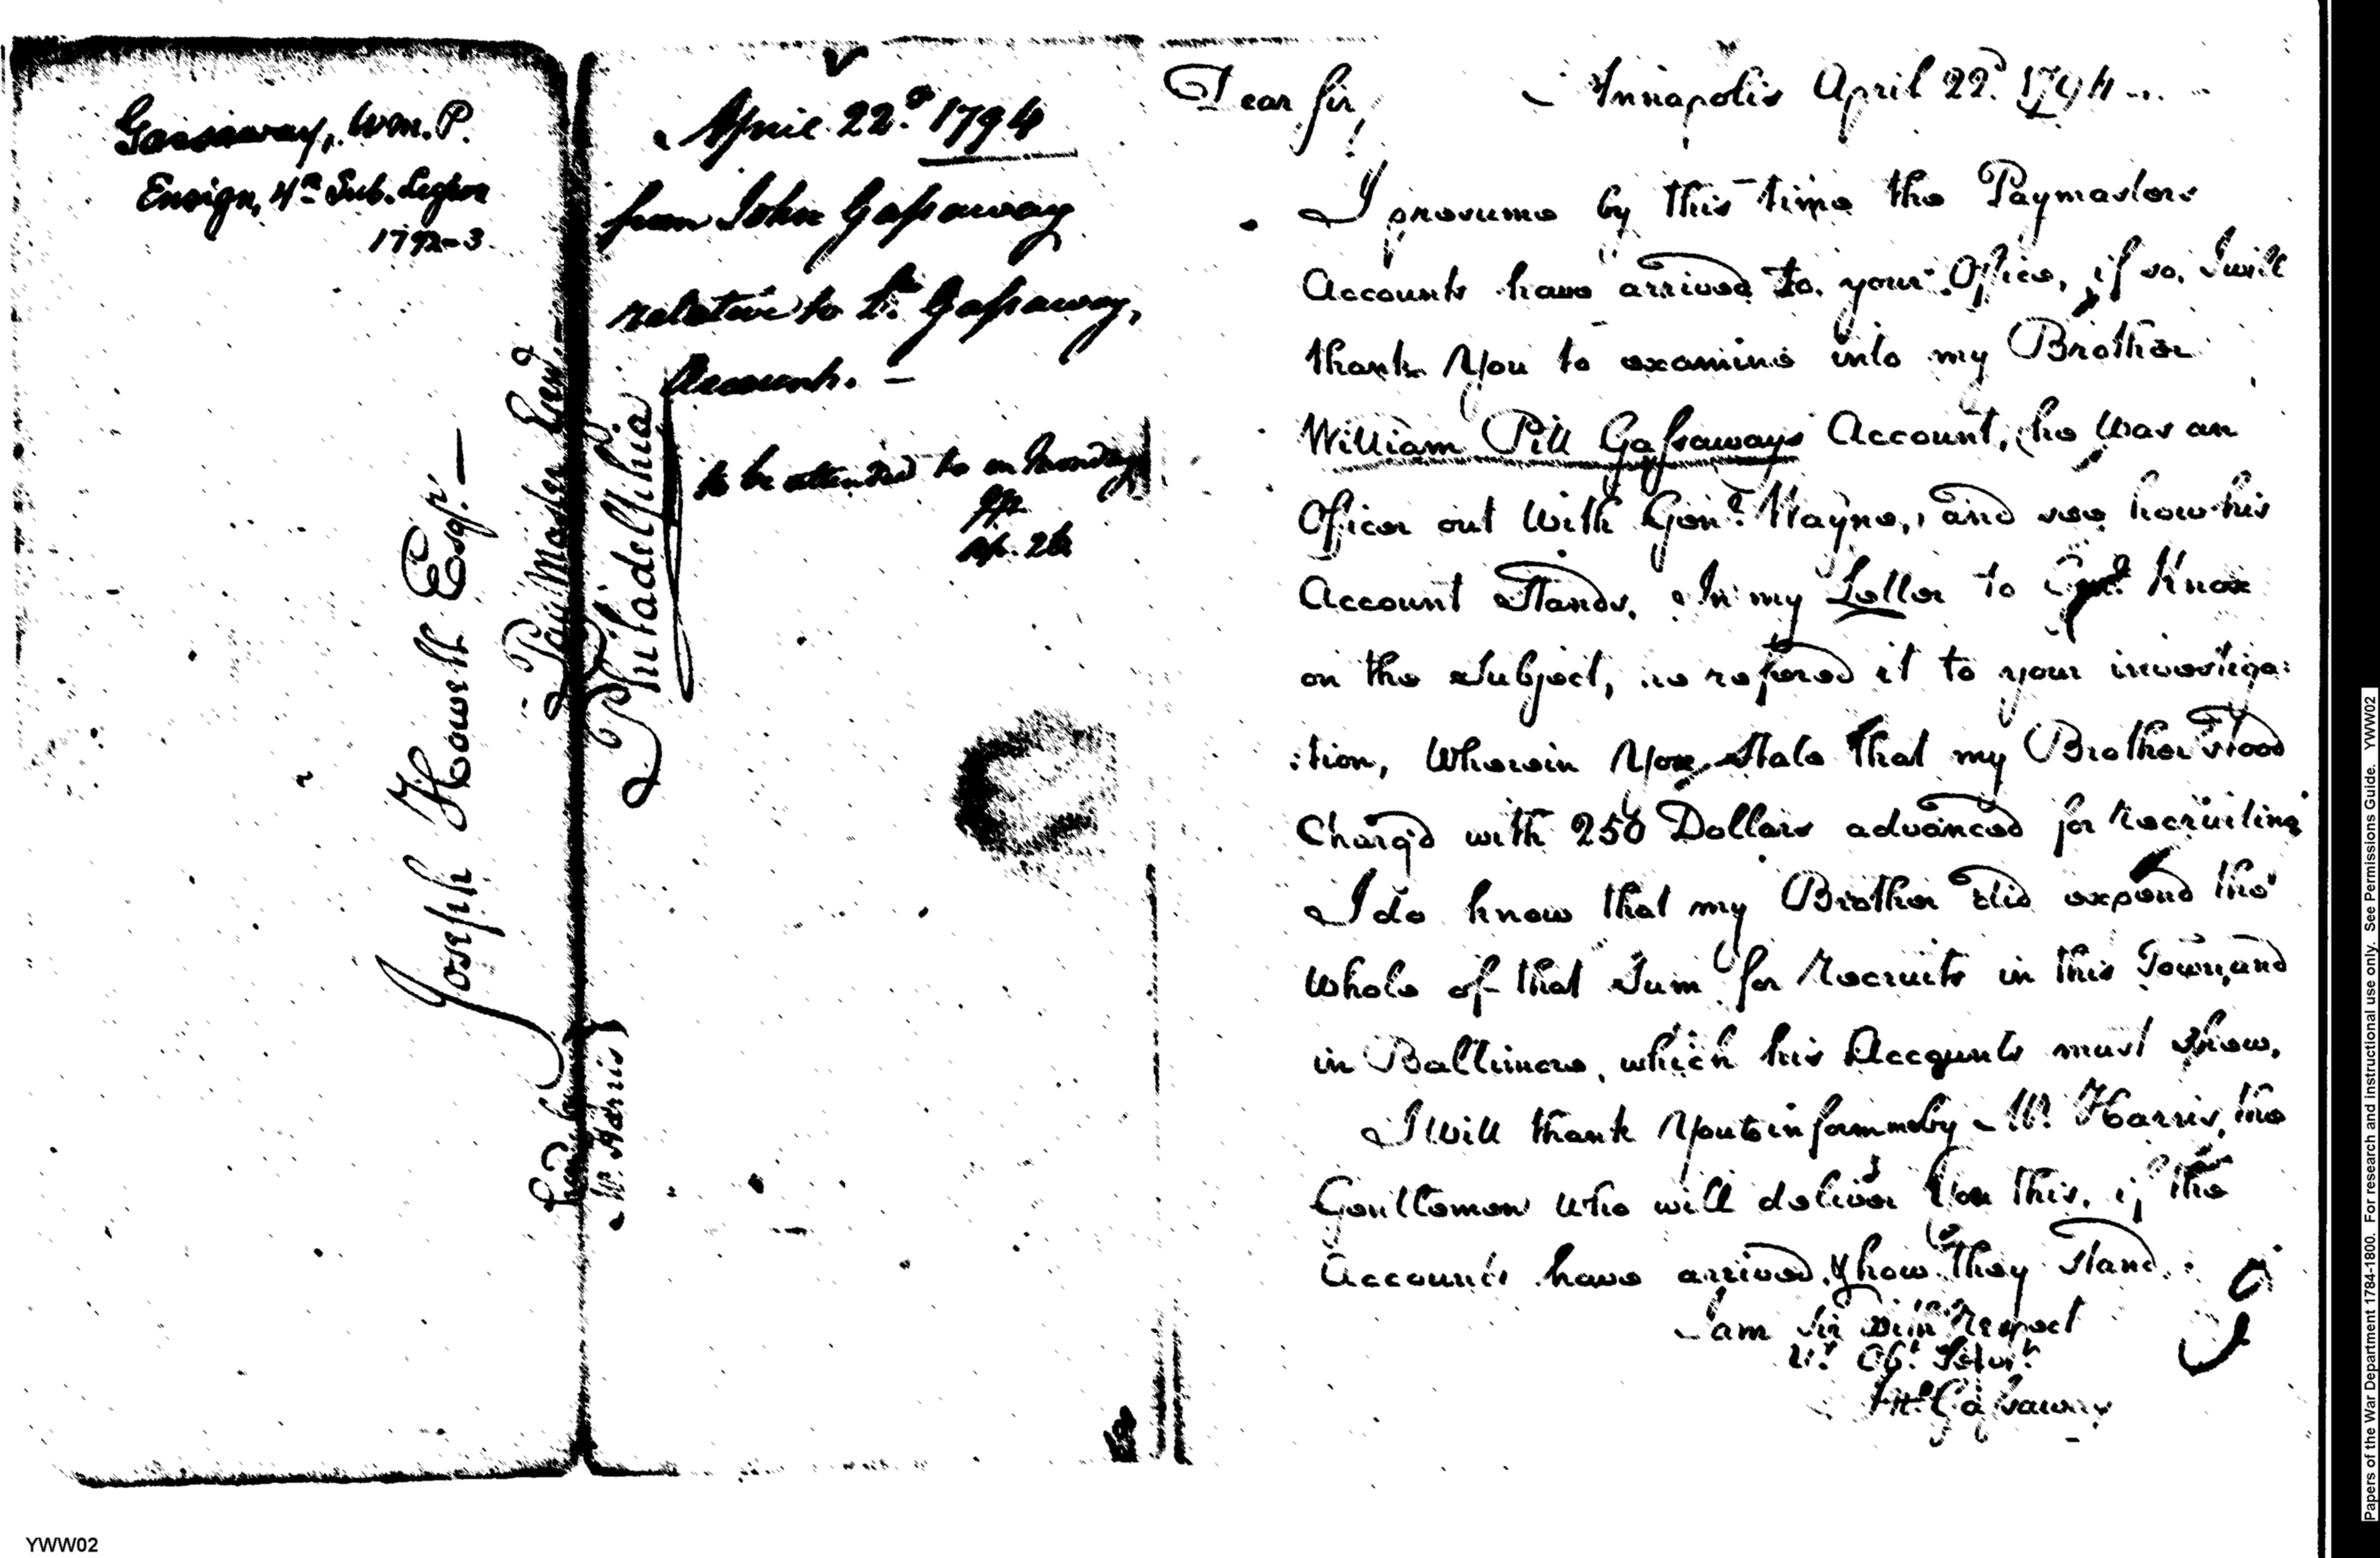 Gassaway, Wm. P.
Ensign, 4th Sub. Legion
1792-3.
Joseph Howell Esqr.
Pay Master Genl
Philadelphia
Mr. Harris
April 22d. 1794
from John Gassaway
relative to Lt. Gassaway,
Accounts. –
to be attended to on Monday
Ap. 26
Dear Sir,
Annapolis April 22d. 1794
I presume by this time the Paymasters
Accounts have arrived to your Office, if so, I will
thank You to examine into my Brother
William Pitt Gassaways Account, he was an
Officer out with Genl. Wayne, and see how his
Account Stands. In my Letter to Genl. Knox
on the Subject, he refered it to your investiga:
:tion, Wherein You State that my Brother Stood
Charg'd with 250 Dollars advanced for recruiting
I do know that my Brother did expend the
whole of that Sum for Recruits in this Town, and
in Baltimore, which his Accounts must show.
I will thank You to inform me by Mr. Harris, the
Gentleman who will deliver You this, if the
Accounts have arrived, & how they Stand.
I am Sir with Respect
Yr. Obt. Servt.
Jno. Gassaway
YWW02
Papers of the War Department 1784-1800. For research and instructional use only. See Permissions Guide. YWW02